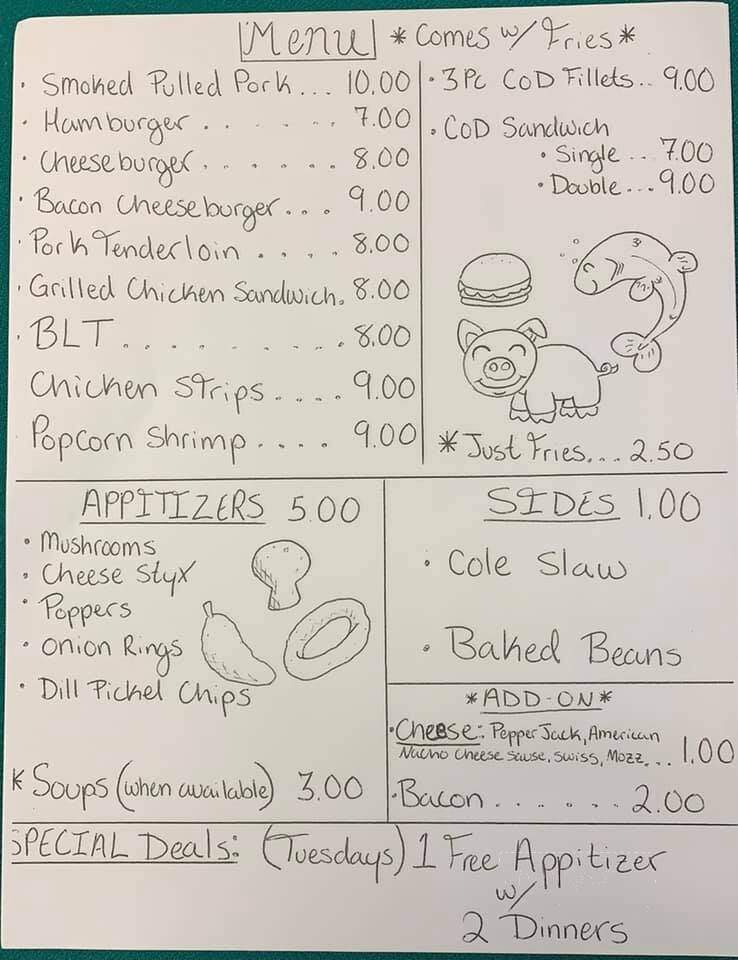 Menu *Comes w/ Fries*
• Smoked Pulled Pork... 10.00
• Hamburger....... 7.00
• Cheeseburger....... 8.00
• Bacon Cheeseburger... 9.00
• Pork Tenderloin.... 8.00
• Grilled Chicken Sandwich. 8.00
• BLT........ 8.00
Chicken Strips.... 9.00
Popcorn Shrimp.... 9.00
• 3Pc CoD Fillets.. 9.00
• CoD Sandwich
• Single... 7.00
• Double... 9.00
*Just Fries... 2.50
APPITIZERS 5.00
• Mushrooms
• Cheese Styx
• Poppers
• Onion Rings
• Dill Pickel Chips
* Soups (when available) 3.00
SIDES 1.00
• Cole Slaw
• Baked Beans
*ADD-ON*
• Cheese: Pepper Jack, American
Nacho Cheese Sause, Swiss, Mozz... 1.00
• Bacon...... 2.00
SPECIAL Deals: (Tuesdays) 1 Free Appitizer
w/
2 Dinners